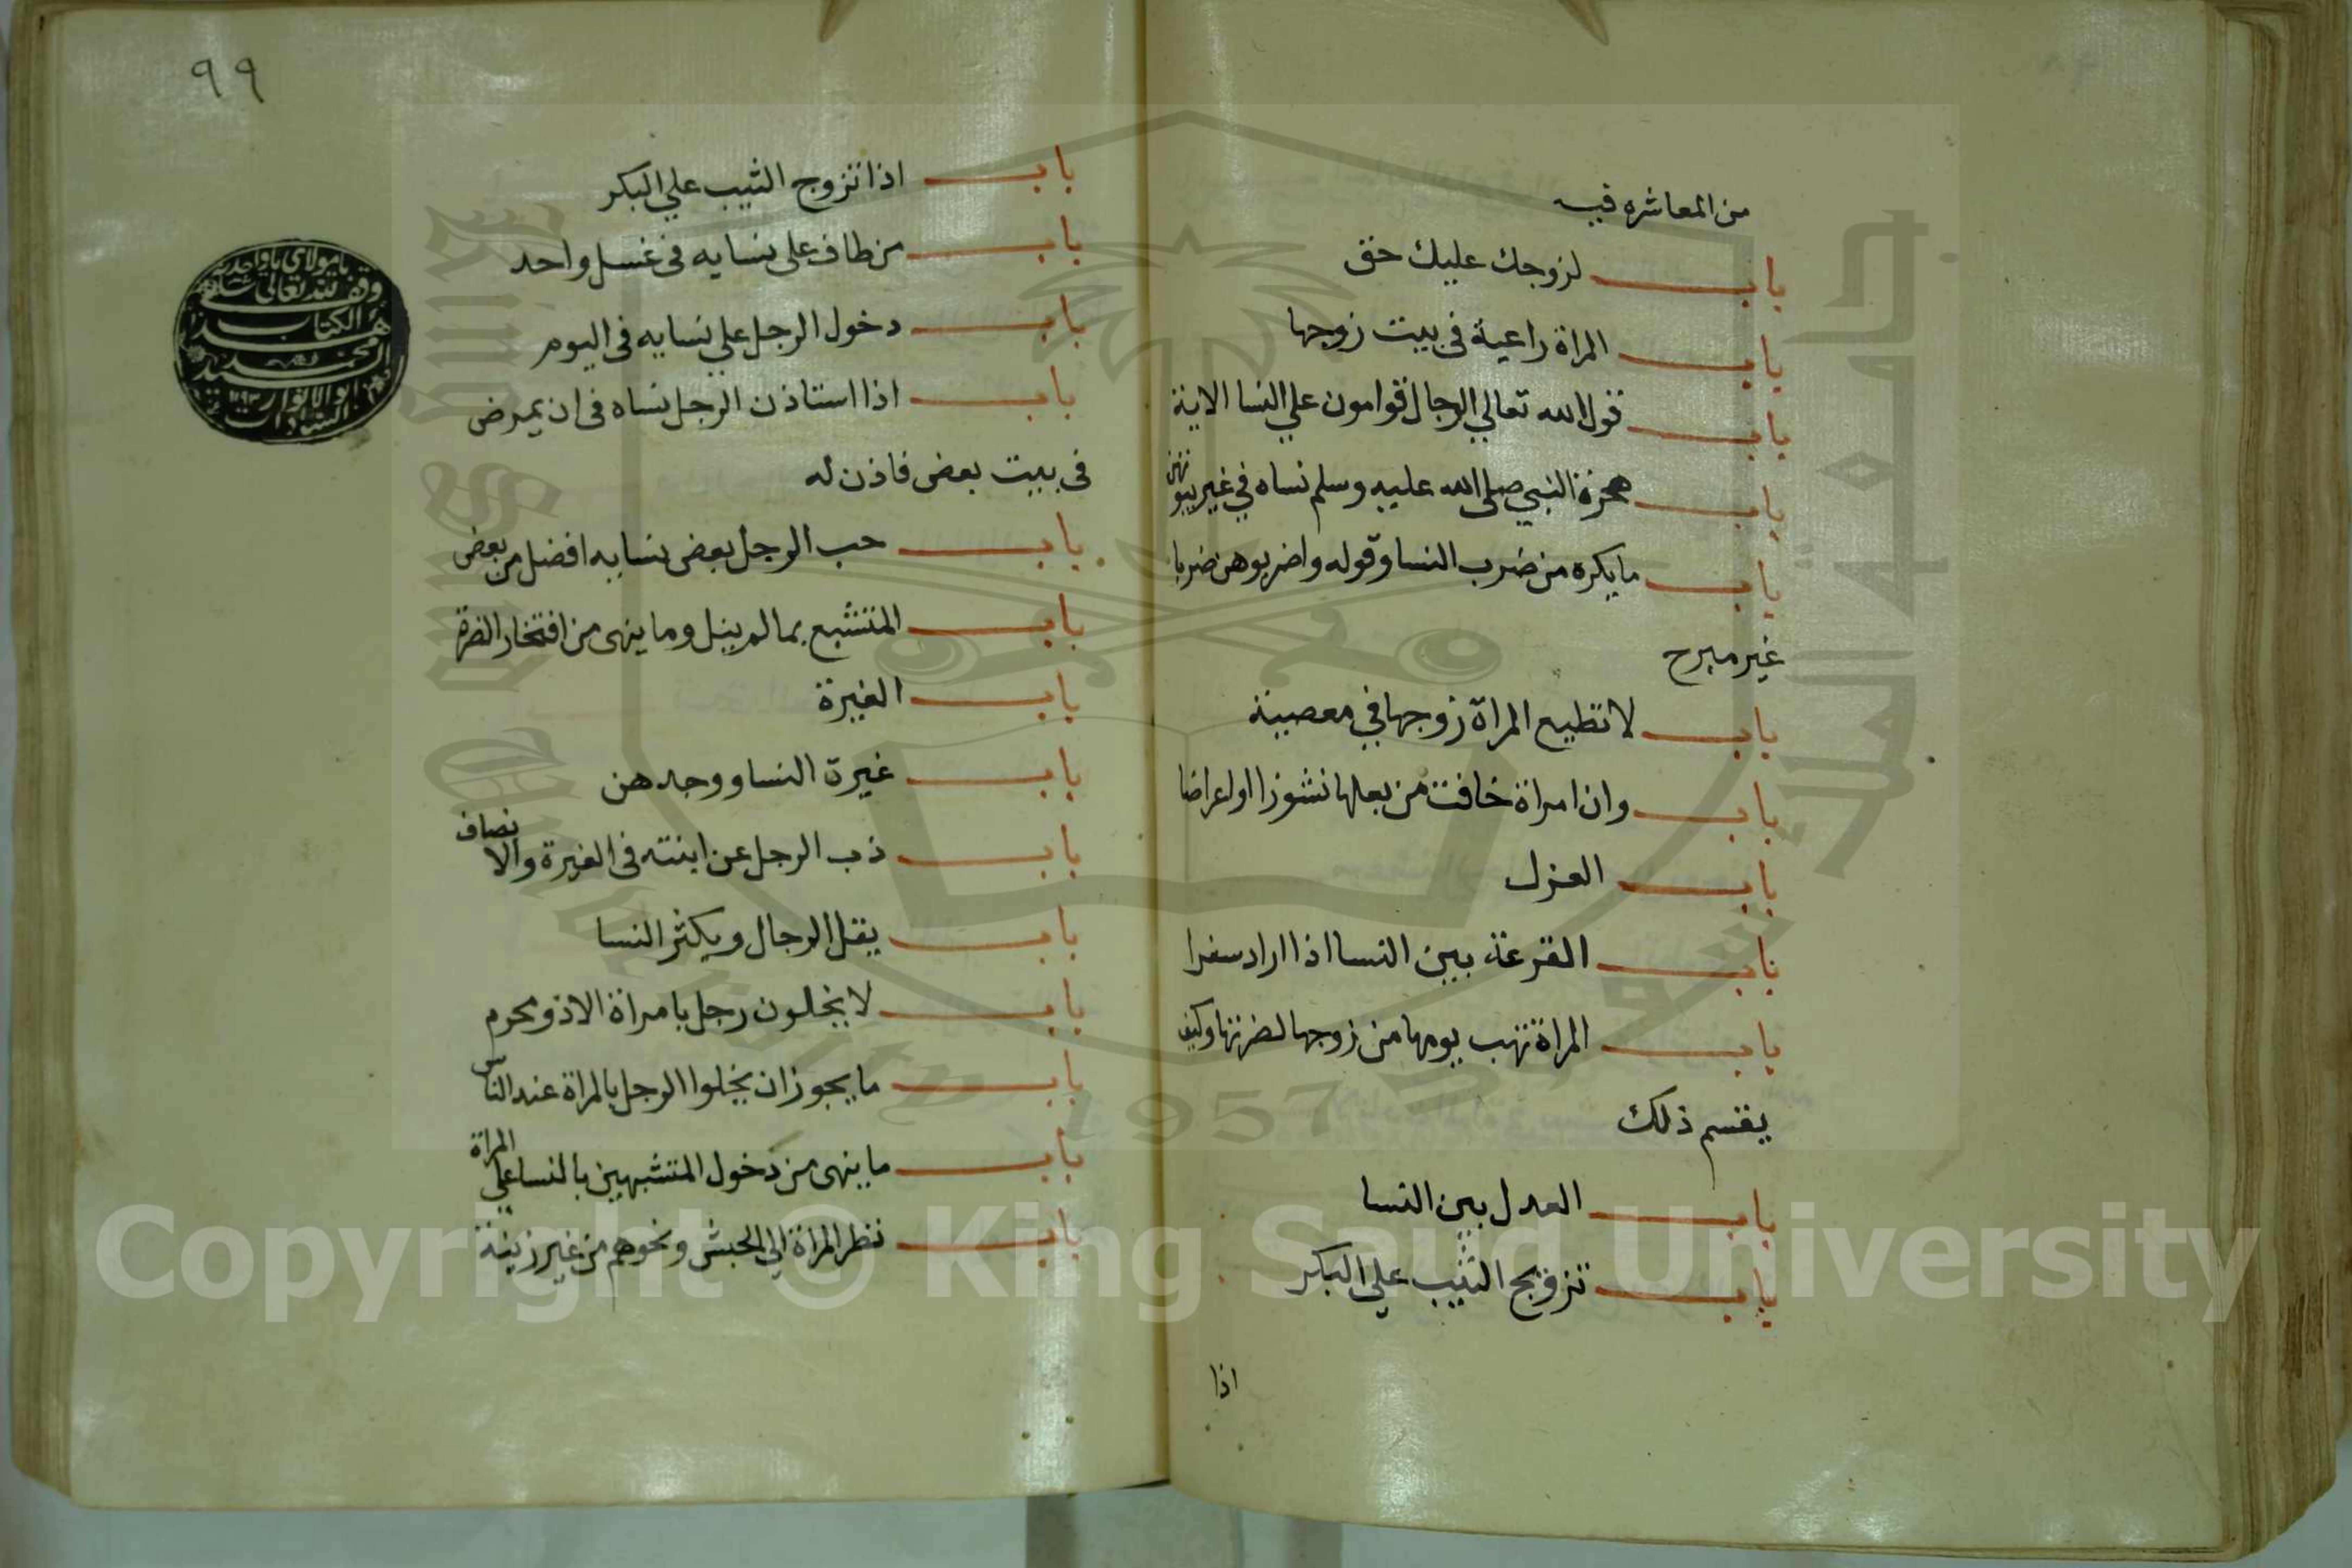 من المعاشره فيه
باب لزوجك عليك حق
باب المراة راعية في بيت زوجها
باب قول الله تعالي الرجال قوامون علي النسا الاية
باب هجرة النبي صلى الله عليه وسلم نساه في غير بيوتهن
باب ما يكره من ضرب النسا وقوله واضربوهن ضربا
غير مبرح
باب لا تطيع المراة زوجها في معصية
باب وان امراة خافت من بعلها نشوزا او اعراضا
باب العزل
باب القرعة بين النسا اذا اراد سفرا
باب المراة تهب يومها من زوجها لضرتها وكيف
يقسم ذلك
باب العدل بين النسا
باب تزويج الثيب علي البكر
اذا
٩٩
باب اذا تزوج الثيب علي البكر
باب من طاف على نسايه في غسل واحد
باب دخول الرجل علي نسايه في اليوم
باب اذا استاذن الرجل نساه في ان يمرض
في بيت بعض فاذن له
باب حب الرجل بعض نسايه افضل من بعض
باب المتشبع بما لم ينل وما ينهى من افتخار الضرة
باب الغيرة
باب غيرة النسا ووجدهن
باب ذب الرجل عن ابنته في الغيرة والانصاف
باب يقل الرجال ويكثر النسا
باب لا يخلون رجل بامراة الا ذو محرم
باب ما يجوز ان يخلوا الرجل بالمراة عند الناس
باب ما ينهى من دخول المتشبهين بالنسا علي المراة
باب نظر المراة الي الحبش ونحوهم من غير زينة
وقف لله تعالى
هذا الكتاب
محمد
السادات
Copyright © King Saud University
King Saud University
1957
جامعة الملك سعود